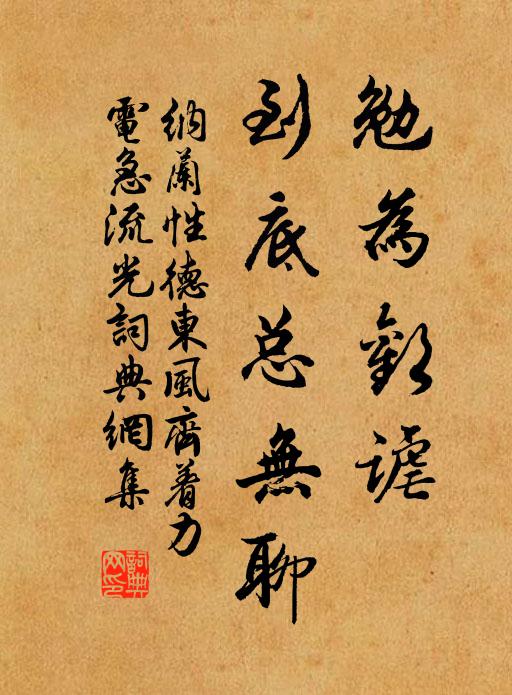 勉為歡謔
到底总無聊
納蘭性德東風齊着力
電急流光詞典網集
詞典网印